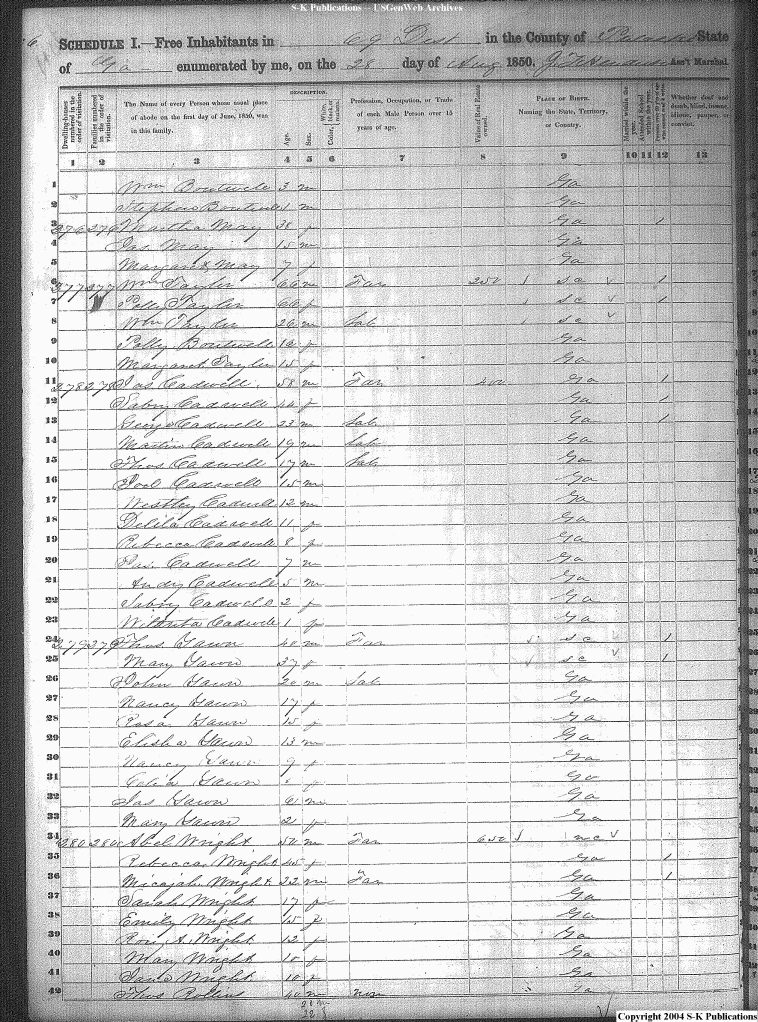 S-K Publications — USGenWeb Archives
SCHEDULE I.—Free Inhabitants in 69 Dist in the County of Pulaski State
of Ga enumerated by me, on the 28 day of Aug 1850. Ass't Marshal
Dwelling-houses numbered in the order of visitation.
Families numbered in the order of visitation.
The Name of every Person whose usual place of abode on the first day of June, 1850, was in this family.
DESCRIPTION.
Age.
Sex.
Color, White, black, or mulatto.
Profession, Occupation, or Trade of each Male Person over 15 years of age.
Value of Real Estate owned.
PLACE OF BIRTH. Naming the State, Territory, or Country.
Married within the year.
Attended School within the year.
Whether deaf and dumb, blind, insane, idiotic, pauper, or convict.
1 2 3 4 5 6 7 8 9 10 11 12 13
1 Wm Boutwell 3 m Ga
2 Stephen Boutwell 1 m Ga
3 276 276 Martha May 38 f Ga 1
4 Jas May 15 m Ga
5 Margaret May 7 f Ga
6 277 277 Wm Taylor 66 m Far 250 S C 1
7 Polly Taylor 66 f S C 1
8 Wm Taylor 26 m Lab S C
9 Polly Boutwell 16 f Ga
10 Margaret Taylor 15 f Ga
11 278 278 Jas Cadwell 58 m Far 400 Ga 1
12 Sabry Cadwell 44 f Ga 1
13 George Cadwell 23 m Lab Ga 1
14 Martin Cadwell 19 m Lab Ga
15 Thos Cadwell 17 m Lab Ga
16 Joel Cadwell 15 m Ga
17 Westley Cadwell 12 m Ga
18 Delila Cadwell 11 f Ga
19 Rebecca Cadwell 8 f Ga
20 Cadwell 7 m Ga
21 Andy Cadwell 5 m Ga
22 Sabry Cadwell 2 f Ga
23 Cadwell 1 f Ga
24 279 279 Thos Gawn 40 m Far S C 1
25 Mary Gawn 37 f S C 1
26 John Gawn 20 m Lab Ga
27 Nancy Gawn 17 f Ga
28 Rosa Gawn 15 f Ga
29 Elisha Gawn 13 m Ga
30 Nancy Gawn 9 f Ga
31 Celia Gawn f Ga
32 Jas Gawn 6 m Ga
33 Mary Gawn 2 f Ga
34 280 280 Abel Wright 50 m Far 650 N C
35 Rebecca Wright 45 f Ga 1
36 Micajah Wright 22 m Far Ga 1
37 Sarah Wright 17 f Ga
38 Emily Wright 15 f Ga
39 Wright 12 f Ga
40 Mary Wright 10 f Ga
41 Jane Wright 10 f Ga
42 Thos Rollins 40 m Ga
Copyright 2004 S-K Publications